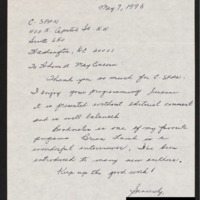 May 7, 1998
C-SPAN
400 N. Capitol St. NW
Suite 650
Washington, DC 20001
To Whom It May Concern
Thank you so much for C-SPAN.
I enjoy your programming because
it is presented without editorial comment
and is well balanced.
Booknotes is one of my favorite
programs. Brian Lamb is a
wonderful interviewer. I've been
introduced to many new authors.
Keep up the good work!
Sincerely,